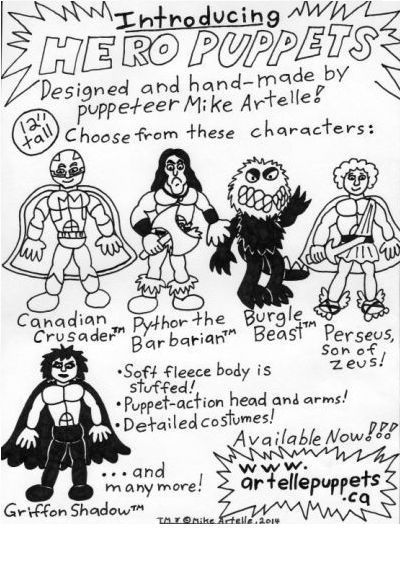 Introducing
HERO PUPPETS
Designed and hand-made by
puppeteer Mike Artelle!
12"
tall
Choose from these characters:
Canadian
Crusader™
Pythor the
Barbarian™
Burgle
Beast™
Perseus,
Son of
Zeus!
• Soft fleece body is
stuffed!
• Puppet-action head and arms!
• Detailed costumes!
Available Now!!!
...and
many more!
www.
artellepuppets
.ca
Griffon Shadow™
TM & © Mike Artelle, 2014